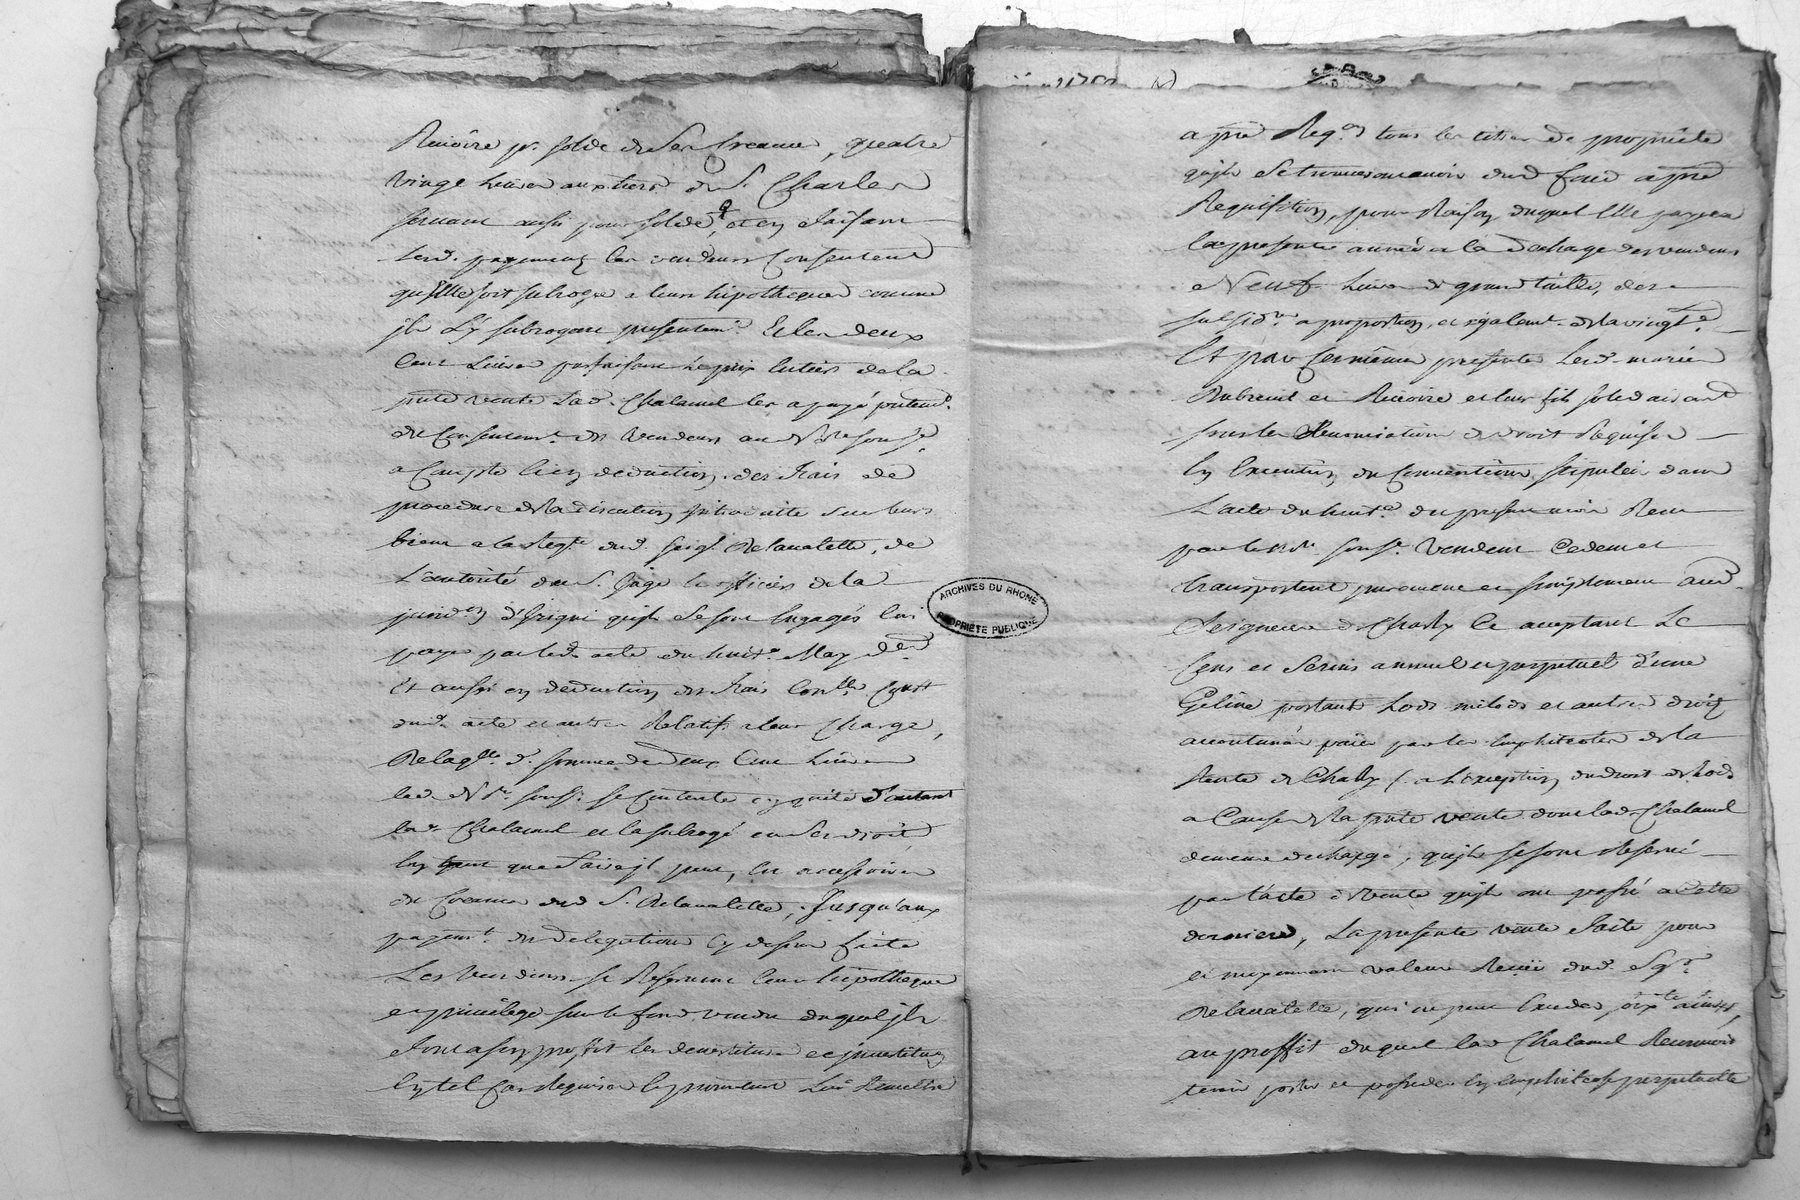 Revoire pr. solde de ses creances, quatre
vingt livres aux hers du Sr. Charles
servant aussi pour solde, et en faisant
lesd. payements les vendeurs consentent
qu'Elle soit subrogée a leurs hipotheques comme
jls L'y subrogent presentemt. Et les deux
Cent Livres parfaisant le prix entier de la
pnte vente Lad. Chalamel les a payé, presentemt.
du Consentemt. des Vendeurs au Nre sousé.
a Compte et en deduction des frais de
procedure de la discution introduite sur leurs
biens a la Reqte. dud. seigr. Delavalette, de
L'autorité de Sr. Juge et officiers de la
juridon d'Irigni qu'jls se sont engagés lui
payer par led. acte du huite. May der.
Et aussi en deduction des frais Conlle Cont
dud. acte et autres Relatifs a leur Charge,
De laqlle. d. somme de deux Cent Livres
led. Nre. sousé. se Contente en quitte d'autant
lad. Chalamel et la subrogé en ses droits
en tant que faire jl peut, et accessoires
de Creances dud. Sr. Delavalette, Jusqu'aux
payemts. des delegations Cy dessus faites
Les Vendeurs se Reservent leur hipotheque
et privilege sur le fond vendu duquel jls
dont a son proffit les devestitures et jnvestitures
En tel Cas Requises et promettent Lui Remettre
a pre Reqon tous les titres de proprieté
qu'jls se trouveront avoir dud. fond a pre
Requisition, pour Raison duquel Elle payera
la presente année a la decharge des vendeurs
Neuf Livres de grand taille, des
subsidre. a proportion, et egalemt. de la vingte.
Et par Ces mêmes presentes Lesd. mariés
Dubreuil et Revoire et leur fils solidairemt
sous les Renonciations de droit Requises
En Execution des Conventions stipulées dans
L'acte du huite. du present mois Recu
par le Nre. sousé. Vendent Cedent et
transportent purement et simplement aud.
Seigneur de Charly Ce acceptant Le
Cens et Servis annuel et perpetuel d'une
Geline portant Lods milods et autres droits
accoutumés paier par les Emphiteotes de la
Rente de Charly (a L'exception du droit de Lods
a Cause de la pnte vente dont lad. Chalamel
demeure dechargé, qu'jls se sont Reservé
par l'acte de vente qu'jls ont passé a Cette
derniere, La presente vente faite pour
et moyennant valeur Recüe dud. Sgr.
Delavalette,
au proffit duquel lad. Chalamel Reconnoit
tenir porter et posseder En Emphiteose perpetuelle
ARCHIVES DU RHONE
PROPRIÉTÉ PUBLIQUE